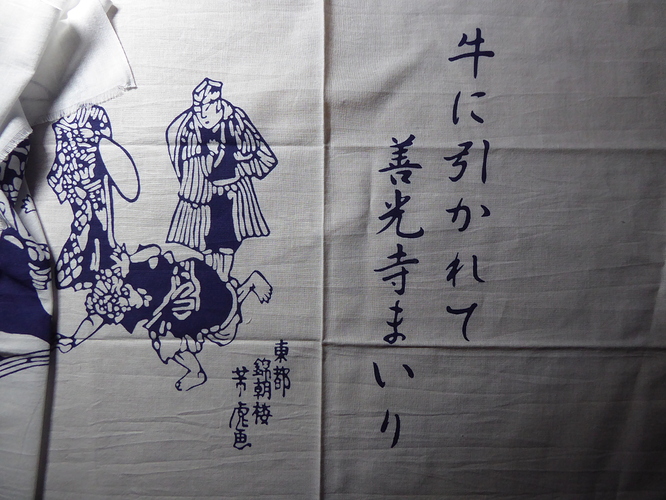 牛に引かれて
善光寺まいり
東都
錦朝楼
芳虎画